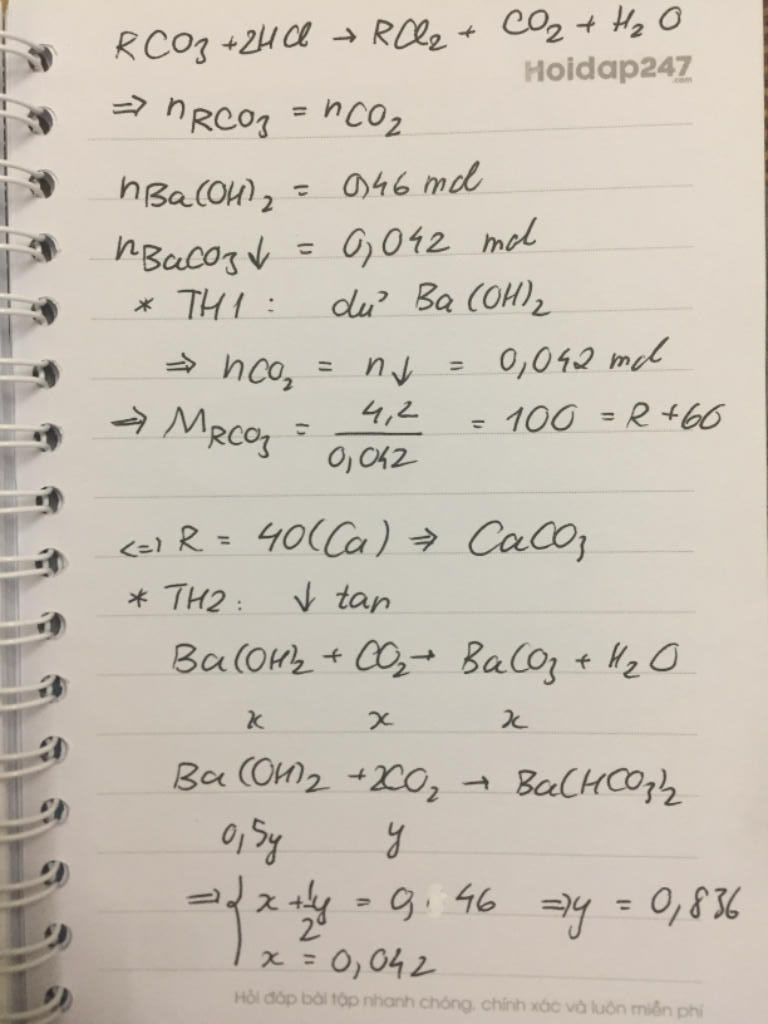 RCO3 + 2HCl → RCl2 + CO2 + H2O
Hoidap247
.com
⇒ nRCO3 = nCO2
nBa(OH)2 = 0,46 mol
nBaCO3↓ = 0,042 mol
* TH1: dư Ba(OH)2
⇒ nCO2 = n↓ = 0,042 mol
⇒ MRCO3 = 4,2 / 0,042 = 100 = R + 60
<=> R = 40(Ca) ⇒ CaCO3
* TH2: ↓ tan
Ba(OH)2 + CO2 → BaCO3 + H2O
x x x
Ba(OH)2 + 2CO2 → Ba(HCO3)2
0,5y y
⇒ { x + 1/2 y = 0,46 ⇒ y = 0,836
x = 0,042
Hỏi đáp bài tập nhanh chóng, chính xác và luôn miễn phí